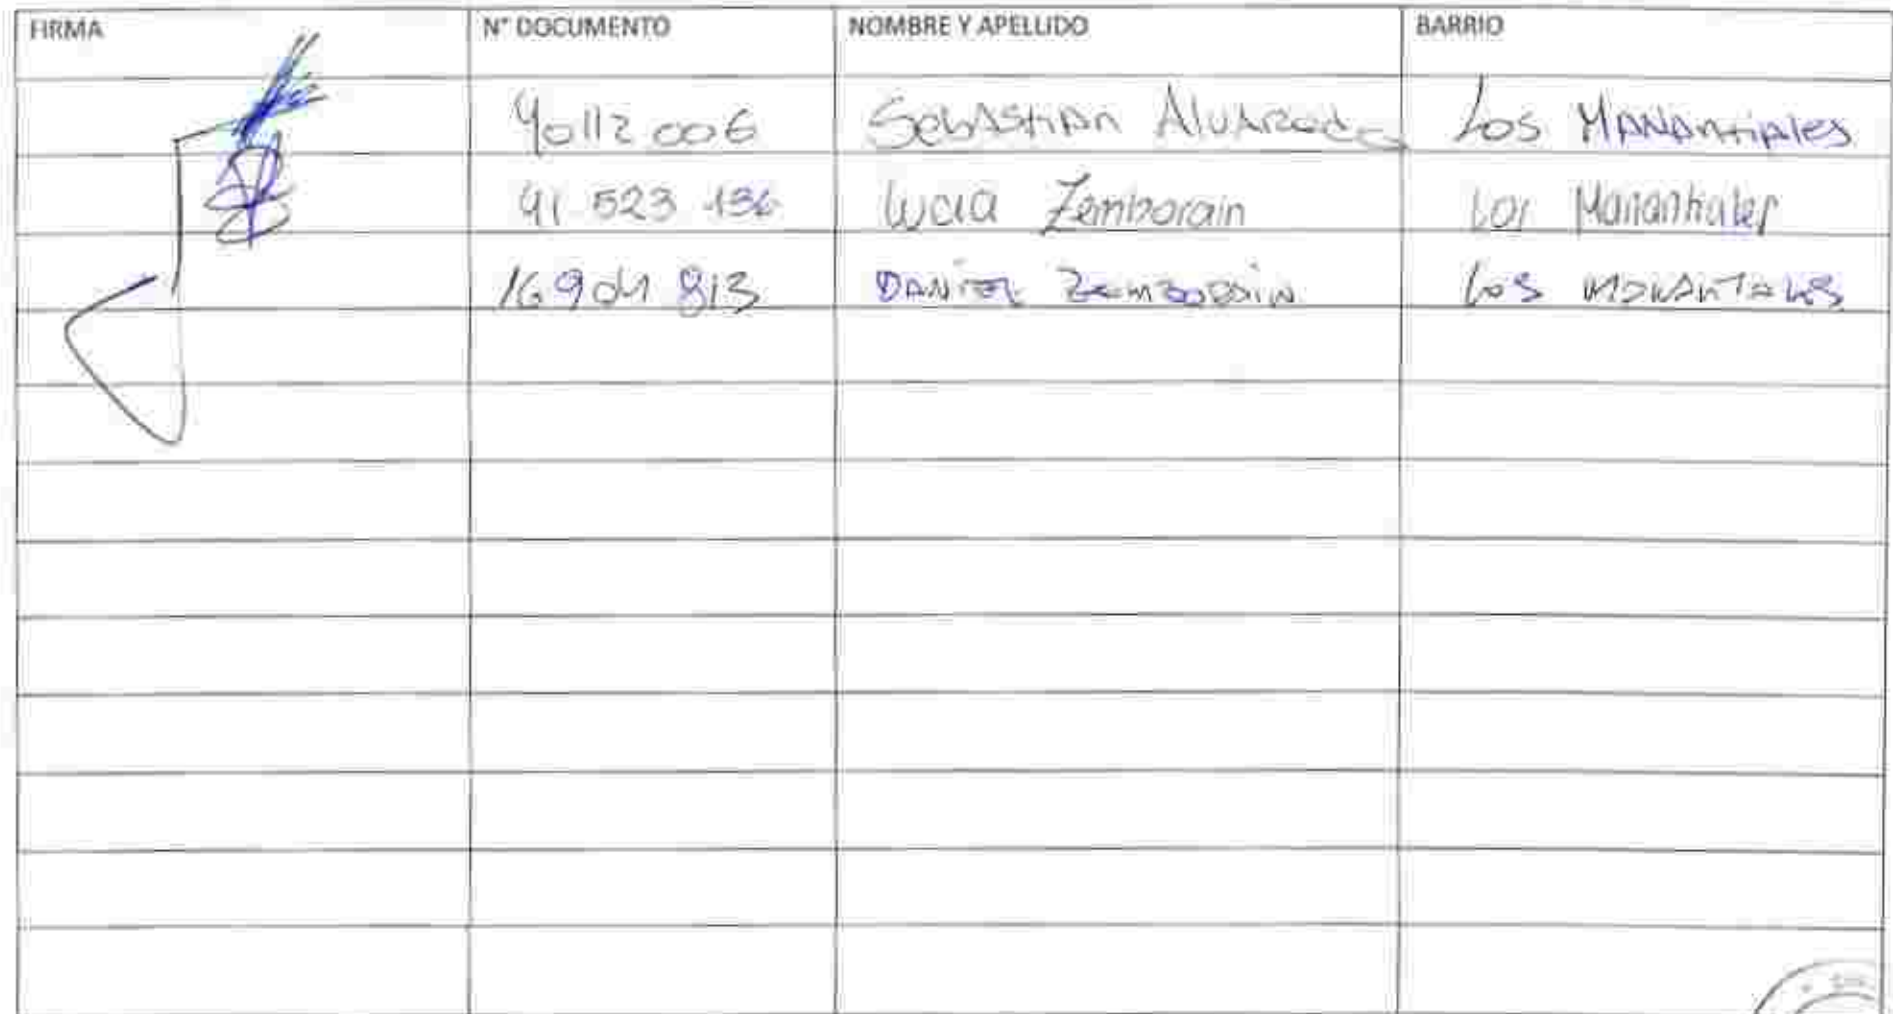 FIRMA N° DOCUMENTO NOMBRE Y APELLIDO BARRIO
40112 006 Sebastian Alvarado Los Manantiales
41 523 136 Lucia Zemborain Los Manantiales
16 901 813 DANIEL ZEMBORAIN Los MANANTIALES